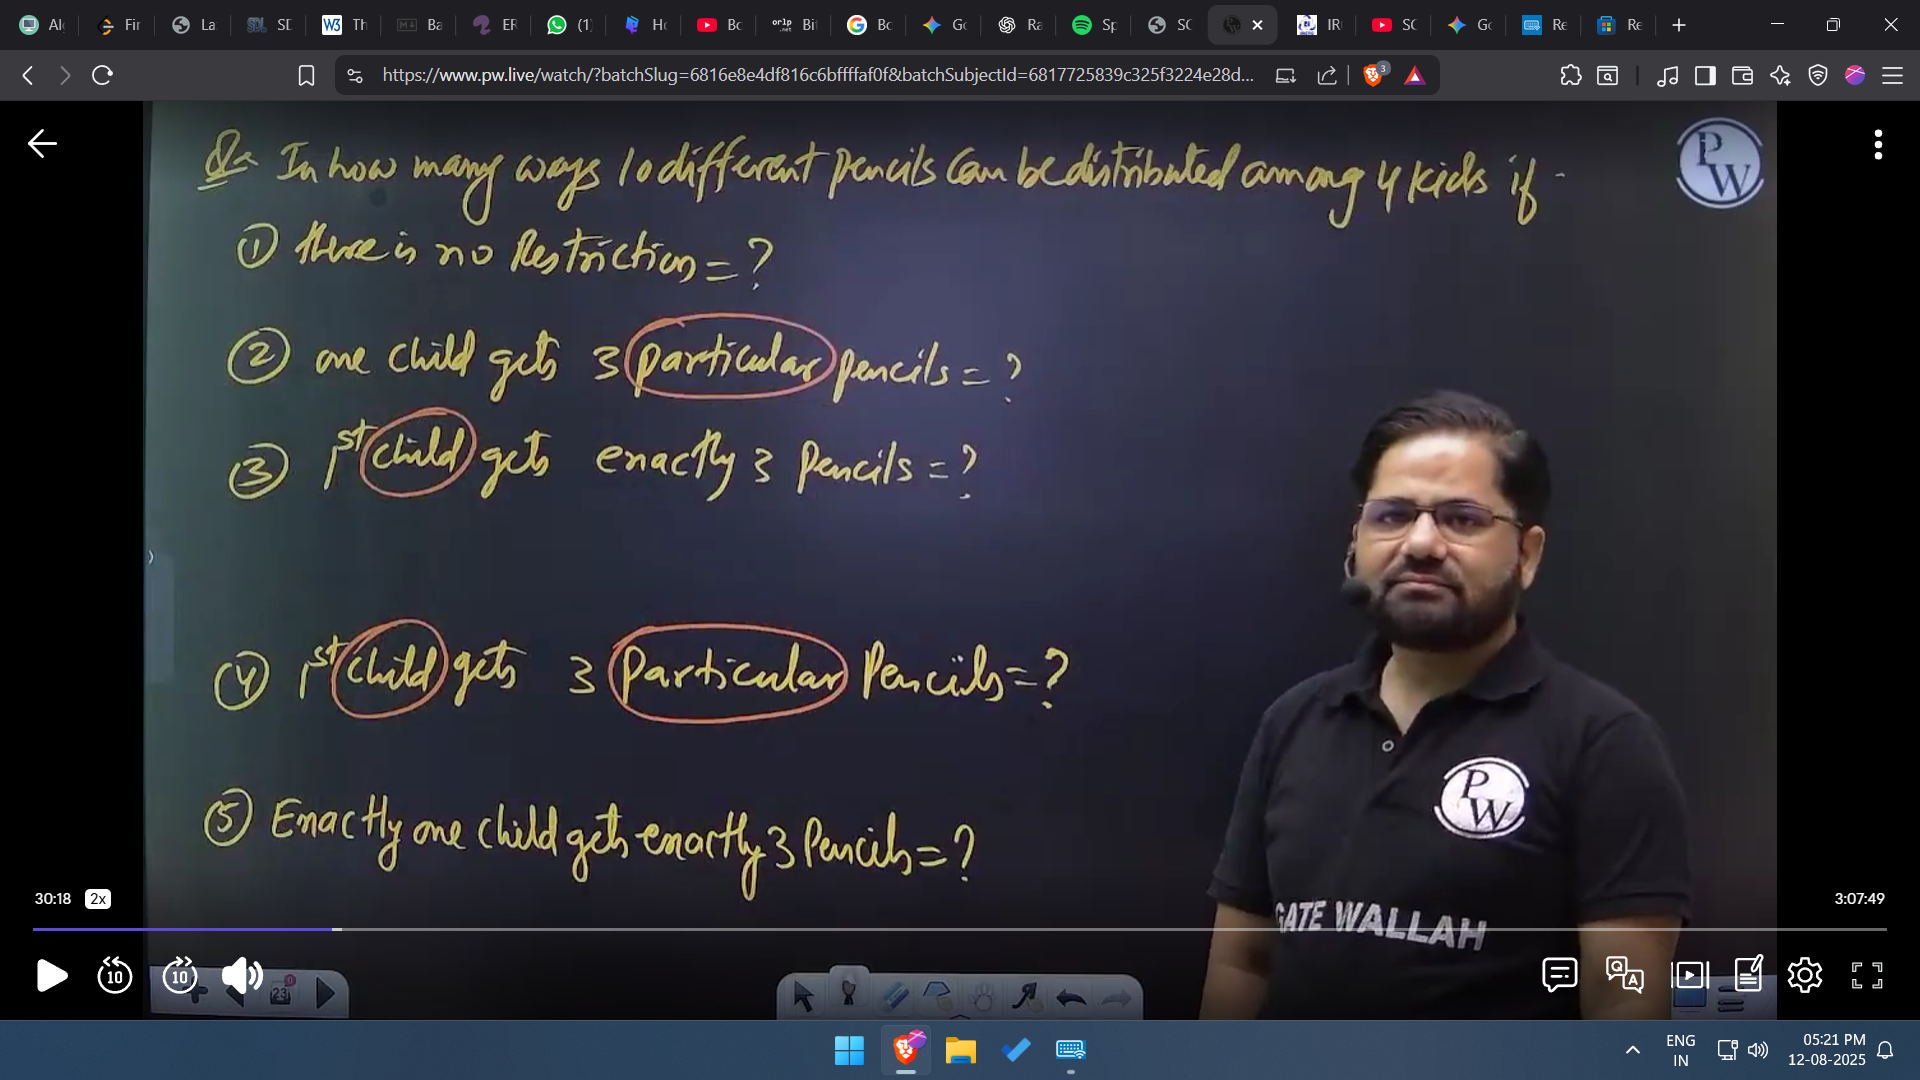 Al
Fir
La
SD
Th
Ba
ER
(1)
Ho
Bo
Bit
Bo
Go
Ra
Sp
SC
IR
SC
Go
Re
Re
https://www.pw.live/watch/?batchSlug=6816e8e4df816c6bffffaf0f&batchSubjectId=6817725839c325f3224e28d...
3
Q= In how many ways 10 different pencils can be distributed among 4 kids if -
PW
① there is no Restriction = ?
② one child gets 3 particular pencils = ?
③ 1st child gets exactly 3 Pencils = ?
④ 1st child gets 3 Particular Pencils = ?
PW
⑤ Exactly one child gets exactly 3 Pencils = ?
30:18 2x
3:07:49
GATE WALLAH
10
10
23
ENG
IN
05:21 PM
12-08-2025